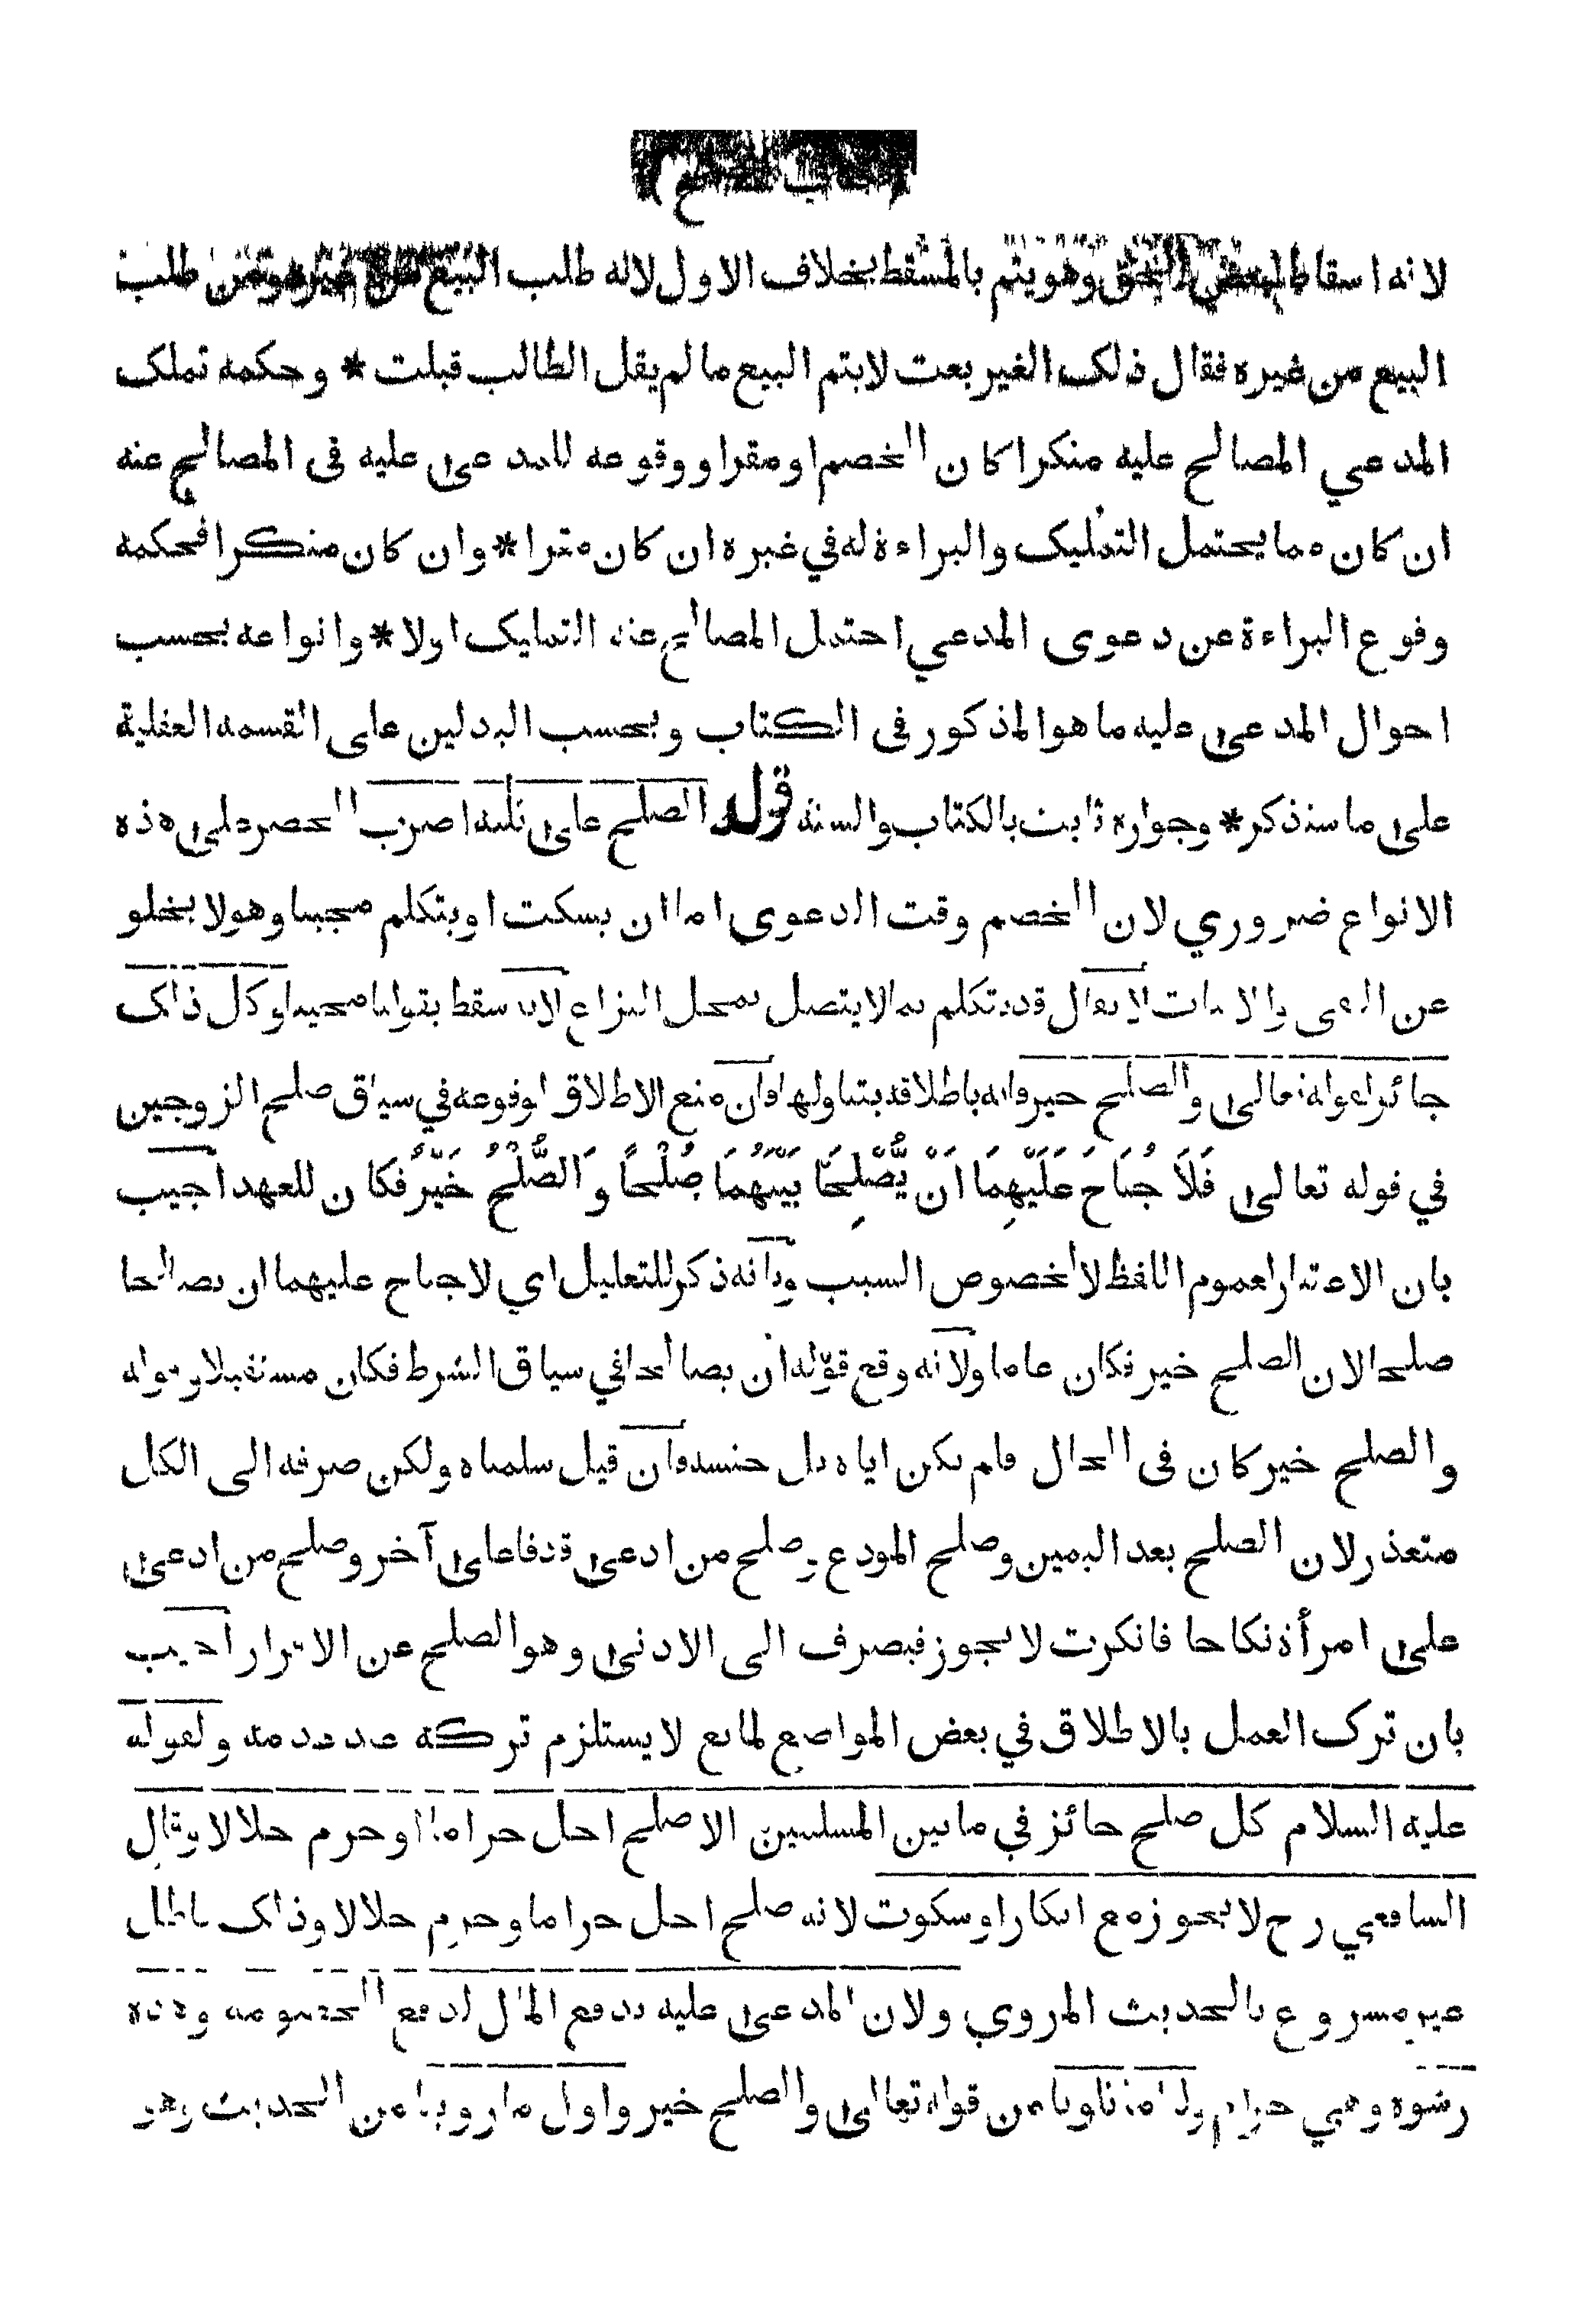 لانه اسقاط لبعض الحق وهو يتم بالمسقط بخلاف الاول لانه طلب البيع من غيره ومن طلب
البيع من غيره فقال ذلك الغير بعت لا يتم البيع ما لم يقل الطالب قبلت * وحكمه تملك
المدعي المصالح عليه منكرا كان الخصم او مقرا ووقوعه للمدعى عليه فى المصالح عنه
ان كان مما يحتمل التمليك والبراءة له في غيره ان كان مقرا * وان كان منكرا فحكمه
وقوع البراءة عن دعوى المدعي احتمل المصالح عنه التمليك اولا * وانواعه بحسب
احوال المدعى عليه ما هو المذكور فى الكتاب وبحسب البدلين على القسمة العقلية
على ما سنذكر * وجوازه ثابت بالكتاب والسنة قوله الصلح على ثلثة اضرب الحصر على هذه
الانواع ضروري لان الخصم وقت الدعوى اما ان يسكت او يتكلم مجيبا وهو لا يخلو
عن النفي والاثبات لا يقال قد يتكلم بما لا يتصل بمحل النزاع لانه سقط بقولنا مجيبا وكل ذلك
جائز لقوله تعالى والصلح خير فانه باطلاقه يتناولها فان منع الاطلاق لوقوعه في سياق صلح الزوجين
في قوله تعالى فَلَا جُنَاحَ عَلَيْهِمَا اَنْ يُّصْلِحَا بَيْنَهُمَا صُلْحًا وَالصُّلْحُ خَيْرٌ فكان للعهد اجيب
بان الاعتبار لعموم اللفظ لا لخصوص السبب وبانه ذكر للتعليل اي لا جناح عليهما ان يصالحا
صلحا لان الصلح خير فكان عاما ولانه وقع قوله ان يصالحا في سياق الشرط فكان مستقبلا وقوله
والصلح خير كان فى الحال فلم يكن اياه بل جنسه فان قيل سلمناه ولكن صرفه الى الكل
متعذر لان الصلح بعد اليمين وصلح المودع وصلح من ادعى قذفا على آخر وصلح من ادعى
على امرأة نكاحا فانكرت لا يجوز فيصرف الى الادنى وهو الصلح عن الاقرار اجيب
بان ترك العمل بالاطلاق في بعض المواضع لمانع لا يستلزم تركه عند عدمه ولقوله
عليه السلام كل صلح جائز في ما بين المسلمين الا صلح احل حراما او حرم حلالا وقال
الشافعي رح لا يجوز مع انكار او سكوت لانه صلح احل حراما وحرم حلالا وذلك باطل
غير مشروع بالحديث المروي ولان المدعى عليه يدفع المال لدفع الخصومة وهذه
رشوة وهي حرام ولنا ما تلونا من قوله تعالى والصلح خير واول ما روينا من الحديث وهو